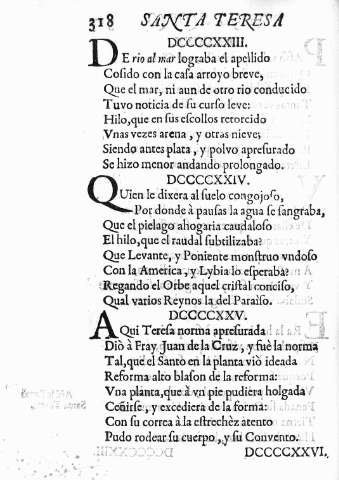 318 SANTA TERESA
DCCCCXXIII.
DE rio al mar lograba el apellido
Cosido con la casa arroyo breve,
Que el mar, ni aun de otro rio conducido
Tuvo noticia de su curso leve:
Hilo, que en sus escollos retorcido
Vnas vezes arena, y otras nieve;
Siendo antes plata, y polvo apresurado
Se hizo menor andando prolongado.
DCCCCXXIV.
QUien le dixera al suelo congojoso,
Por donde à pausas la agua se sangraba,
Que el pielago ahogaria caudaloso
El hilo, que el raudal subtilizaba?
Que Levante, y Poniente monstruo vndoso
Con la America, y Lybia lo esperaba?
Regando el Orbe aquel cristal conciso,
Qual varios Reynos la del Paraìso.
DCCCCXXV.
AQui Teresa norma apresurada
Diò à Fray Juan de la Cruz, y fuè la norma
Tal, que el Santo en la planta viò ideada
Reforma alto blason de la reforma:
Vna planta, que à vn pie pudiera holgada
Ceñirse, y excediera de la forma:
Con su correa à la estrechèz atento
Pudo rodear su cuerpo, y su Convento.
DCCCCXXVI.